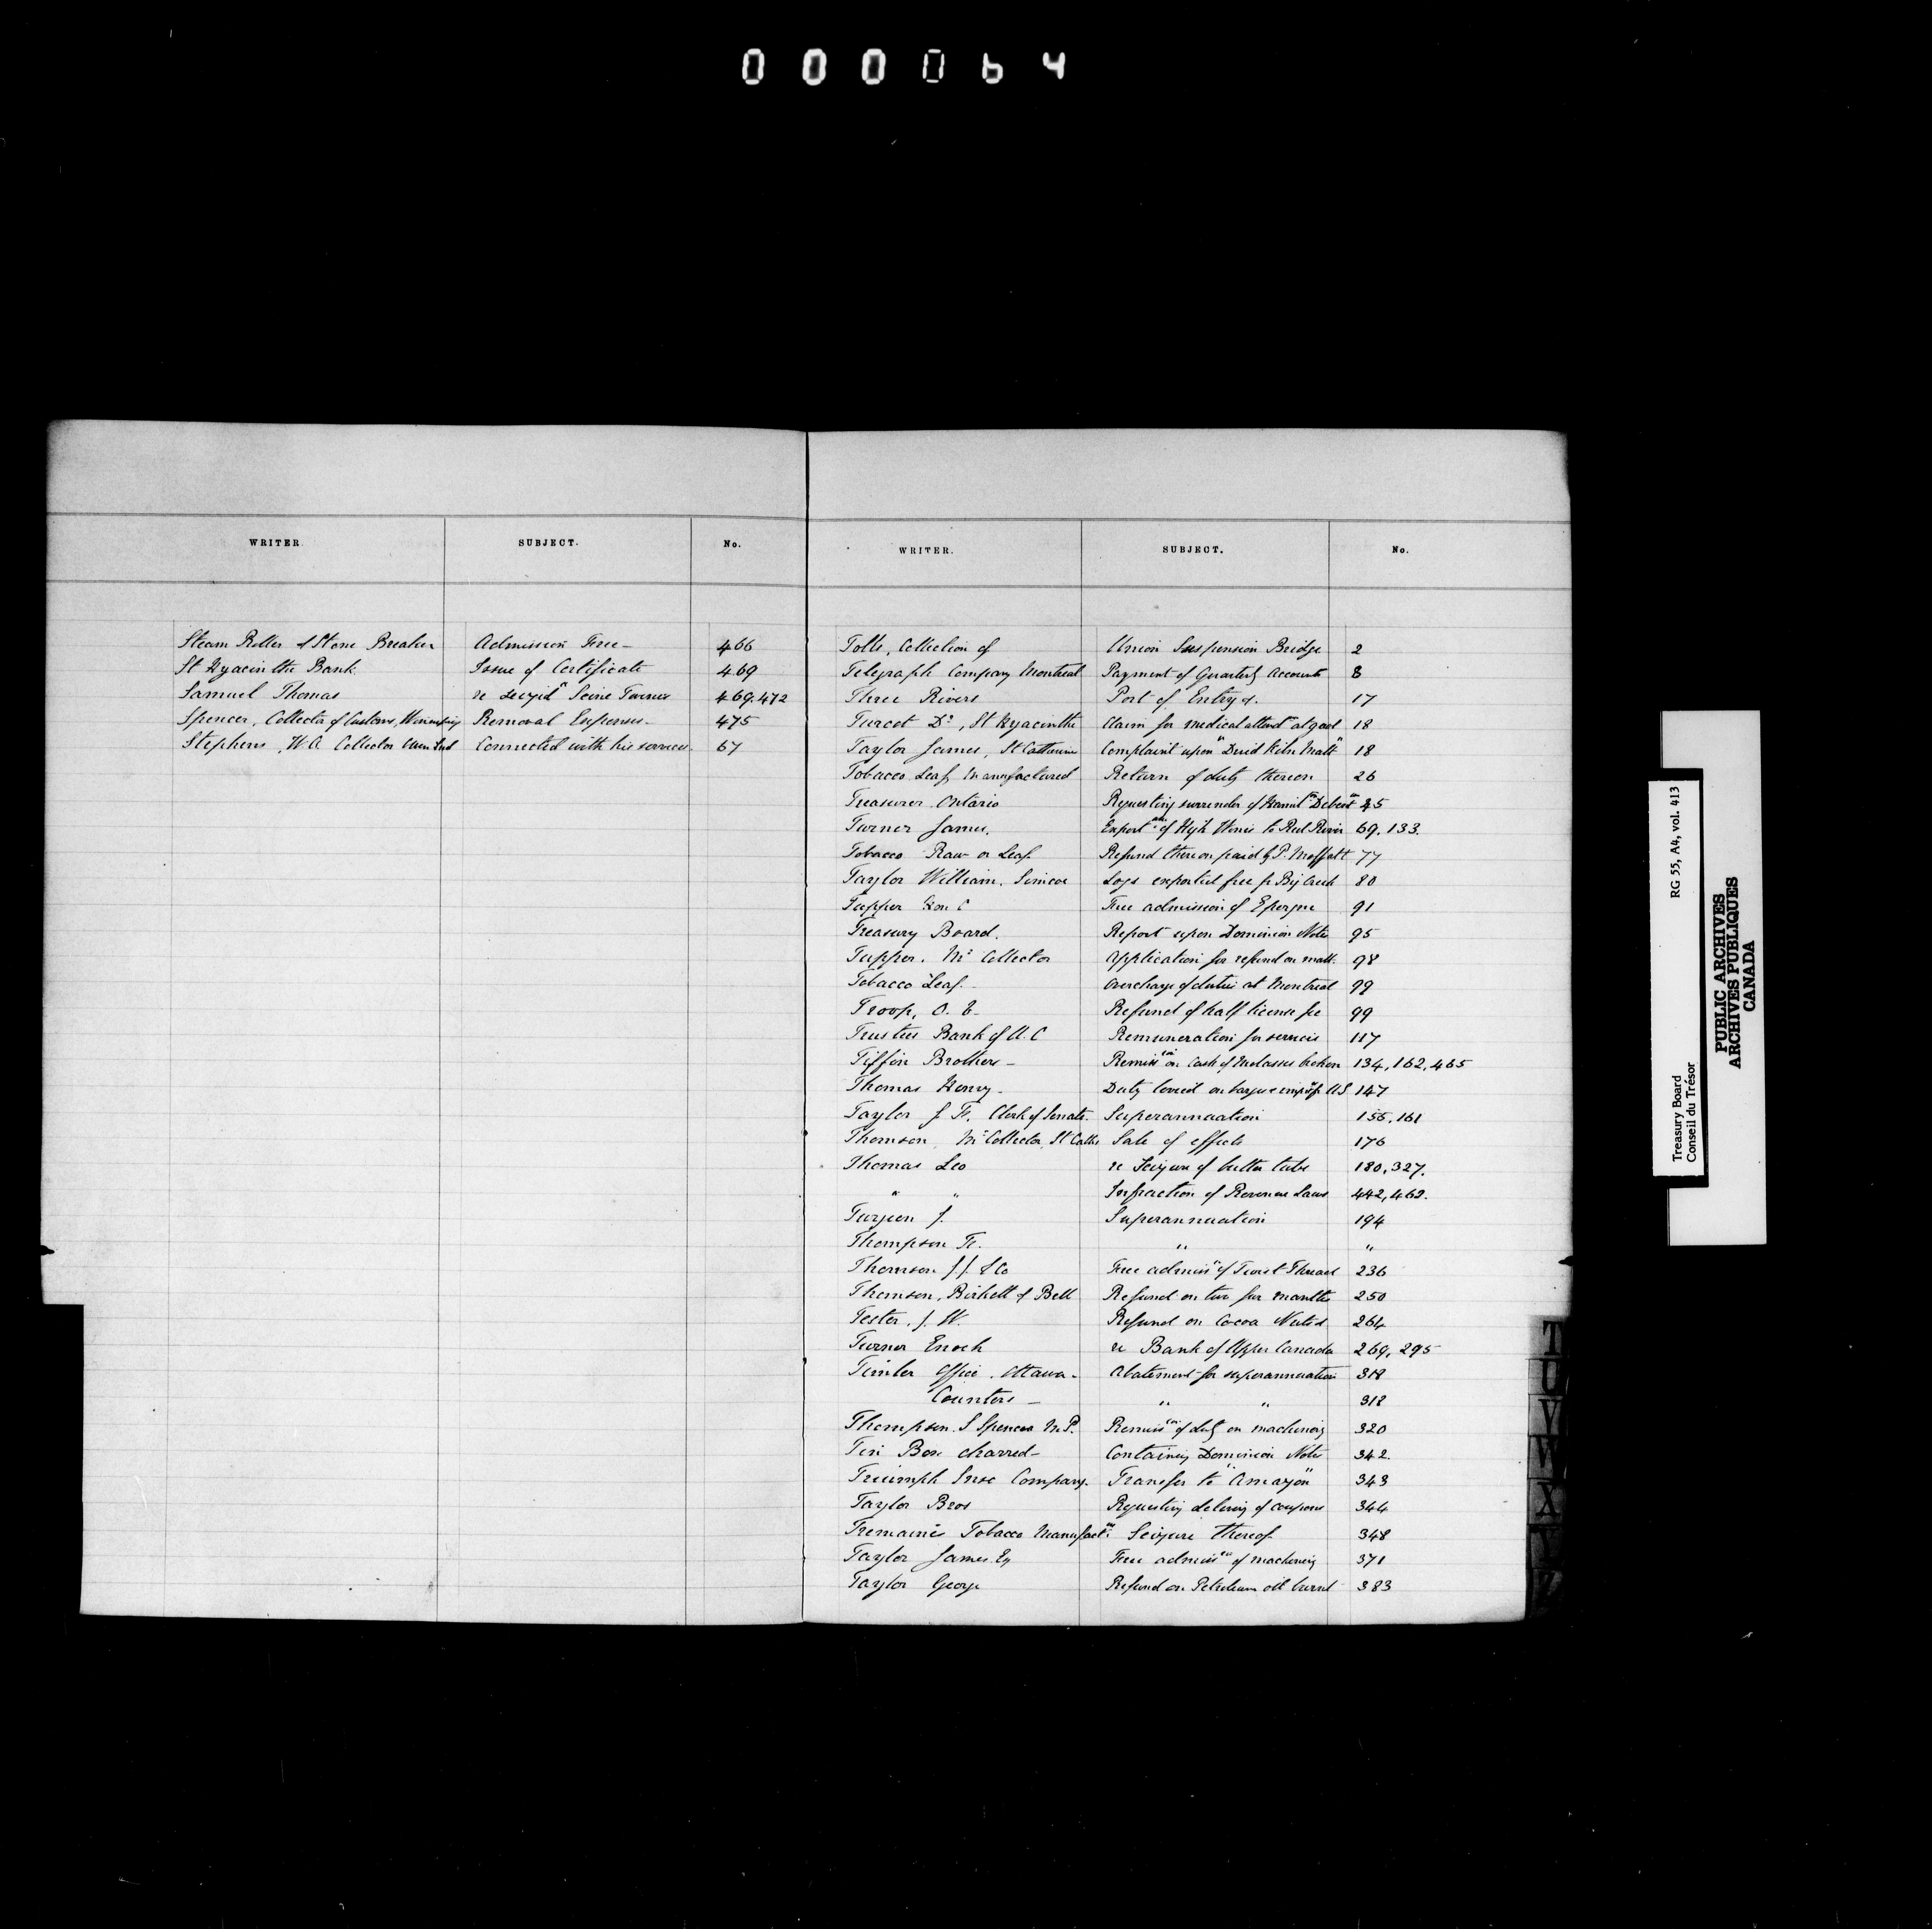 000064
WRITER. SUBJECT. No.
Steam Roller & Stone Breaker Admission Free - 466
St Hyacinthe Bank Issue of Certificate 469
Samuel Thomas re Twine 469.472
Spencer, Collector of Customs, Winnipeg Removal Expenses - 475
Stephens, W.A. Collector Owen Snd Connected with his services. 67
WRITER. SUBJECT. No.
Tolls, Collection of Union Suspension Bridge 2
Telegraph Company Montreal Payment of Quarterly Accounts 8
Three Rivers Port of Entry &. 17
Turcot Dr, St Hyacinthe Claim for medical attendce at gaol 18
Taylor James, St Catherines Complaint upon "Dried Kiln Malt" 18
Tobacco Leaf, Manufactured Return of duty thereon 26
Treasurer Ontario Requesting surrender of Hamiltn Debent 45
Turner James. of High Wines to Red River 69.133.
Tobacco Raw or Leaf. Refund thereon paid by P. Moffatt 77
Taylor William. Simcoe Logs exported free fr Big Creek 80
Tupper Hon C Free admission of Epergne 91
Treasury Board. Report upon Dominion Notes 95
Tupper. Mr Collector Application for refund on malt. 98
Tobacco Leaf. Overcharge of duties at Montreal 99
Troop, O. E. Refund of half license fee 99
Trustees Bank of U.C Remuneration for services 117
Tiffin Brothers - Remissn on Cask of Molasses broken 134, 162, 465
Thomas Henry. Duty levied on barge U.S 147
Taylor J. F. Clerk of Senate. Superannuation 155, 161
Thomson, Mr Collector, St Cathe Sale of effects 176
Thomas Leo re Seizure of butter tubs 180, 327.
" " Infraction of Revenue Laws 442, 462.
Turgeon J. Superannuation 194
Thompson Fr. " "
Thomson J.J. & Co Free admissn of Twist Thread 236
Thomson, Birkett & Bell Refund on two fur mantles 250
Tester, J. W. Refund on Cocoa Nuts 264
Turner Enoch re Bank of Upper Canada 269, 295
Timber Office. Ottawa - Abatement for superannuation 318
Counters - " " 318
Thompson. S Spencer M.P. Remissn of duty on machinery 320
Tin Box charred - Containing Dominion Notes 342.
Triumph Inse Company. Transfer to "Amazon" 343
Taylor Bros Requesting delivery of coupons 344
Tremaine Tobacco Manufactn. Seizure thereof. 348
Taylor James. Esq Free admissn of machinery 371
Taylor George Refund on Petroleum oil barrel 383
T
U
V
W
X
Y
Z
RG 55, A4, vol. 413
Treasury Board
Conseil du Trésor
PUBLIC ARCHIVES
ARCHIVES PUBLIQUES
CANADA